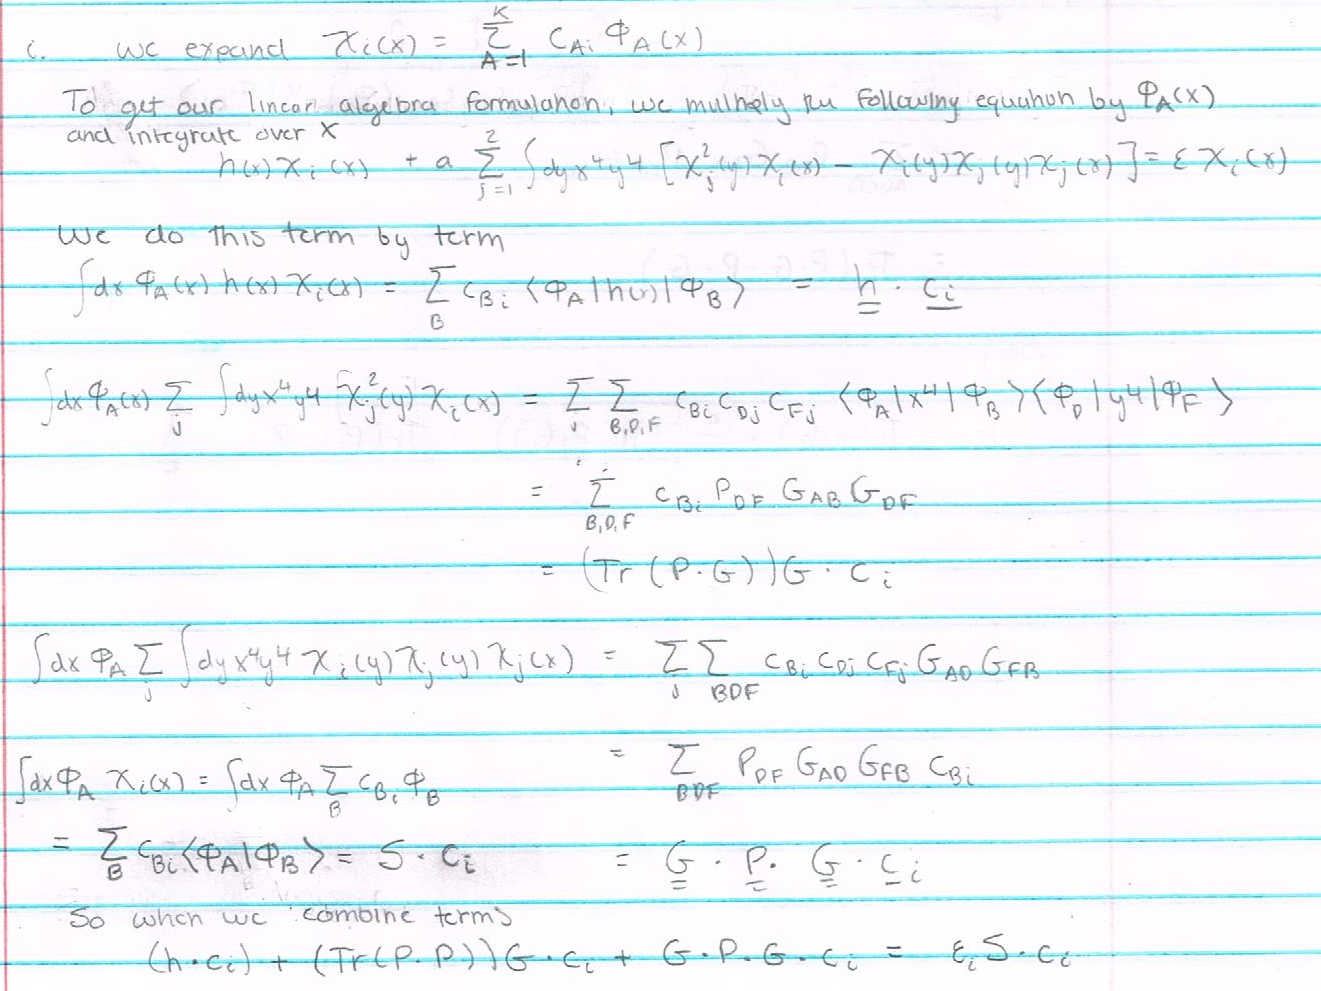 i. we expand χᵢ(x) = Σ_{A=1}^{K} C_{Ai} Φ_A(x)
To get our linear algebra formulation, we multiply the following equation by Φ_A(x)
and integrate over x
h(x) χᵢ(x) + a Σ_{j=1}^{2} ∫dy x⁴y⁴ [χⱼ²(y) χᵢ(x) − χᵢ(y) χⱼ(y) χⱼ(x)] = ε χᵢ(x)
We do this term by term
∫dx Φ_A(x) h(x) χᵢ(x) = Σ_B C_{Bi} ⟨Φ_A|h(x)|Φ_B⟩ = h · cᵢ
∫dx Φ_A(x) Σ_j ∫dy x⁴y⁴ χⱼ²(y) χᵢ(x) = Σ_j Σ_{B,D,F} C_{Bi} C_{Dj} C_{Fj} ⟨Φ_A|x⁴|Φ_B⟩⟨Φ_D|y⁴|Φ_F⟩
= Σ_{B,D,F} C_{Bi} P_{DF} G_{AB} G_{DF}
= (Tr(P·G))G · cᵢ
∫dx Φ_A Σ_j ∫dy x⁴y⁴ χᵢ(y) χⱼ(y) χⱼ(x) = Σ_j Σ_{BDF} C_{Bi} C_{Dj} C_{Fj} G_{AD} G_{FB}
= Σ_{BDF} P_{DF} G_{AD} G_{FB} C_{Bi}
∫dx Φ_A χᵢ(x) = ∫dx Φ_A Σ_B C_{Bi} Φ_B
= Σ_B C_{Bi} ⟨Φ_A|Φ_B⟩ = S · cᵢ
= G · P · G · cᵢ
So when we combine terms
(h·cᵢ) + (Tr(P·P))G · cᵢ + G·P·G·cᵢ = εᵢ S·cᵢ